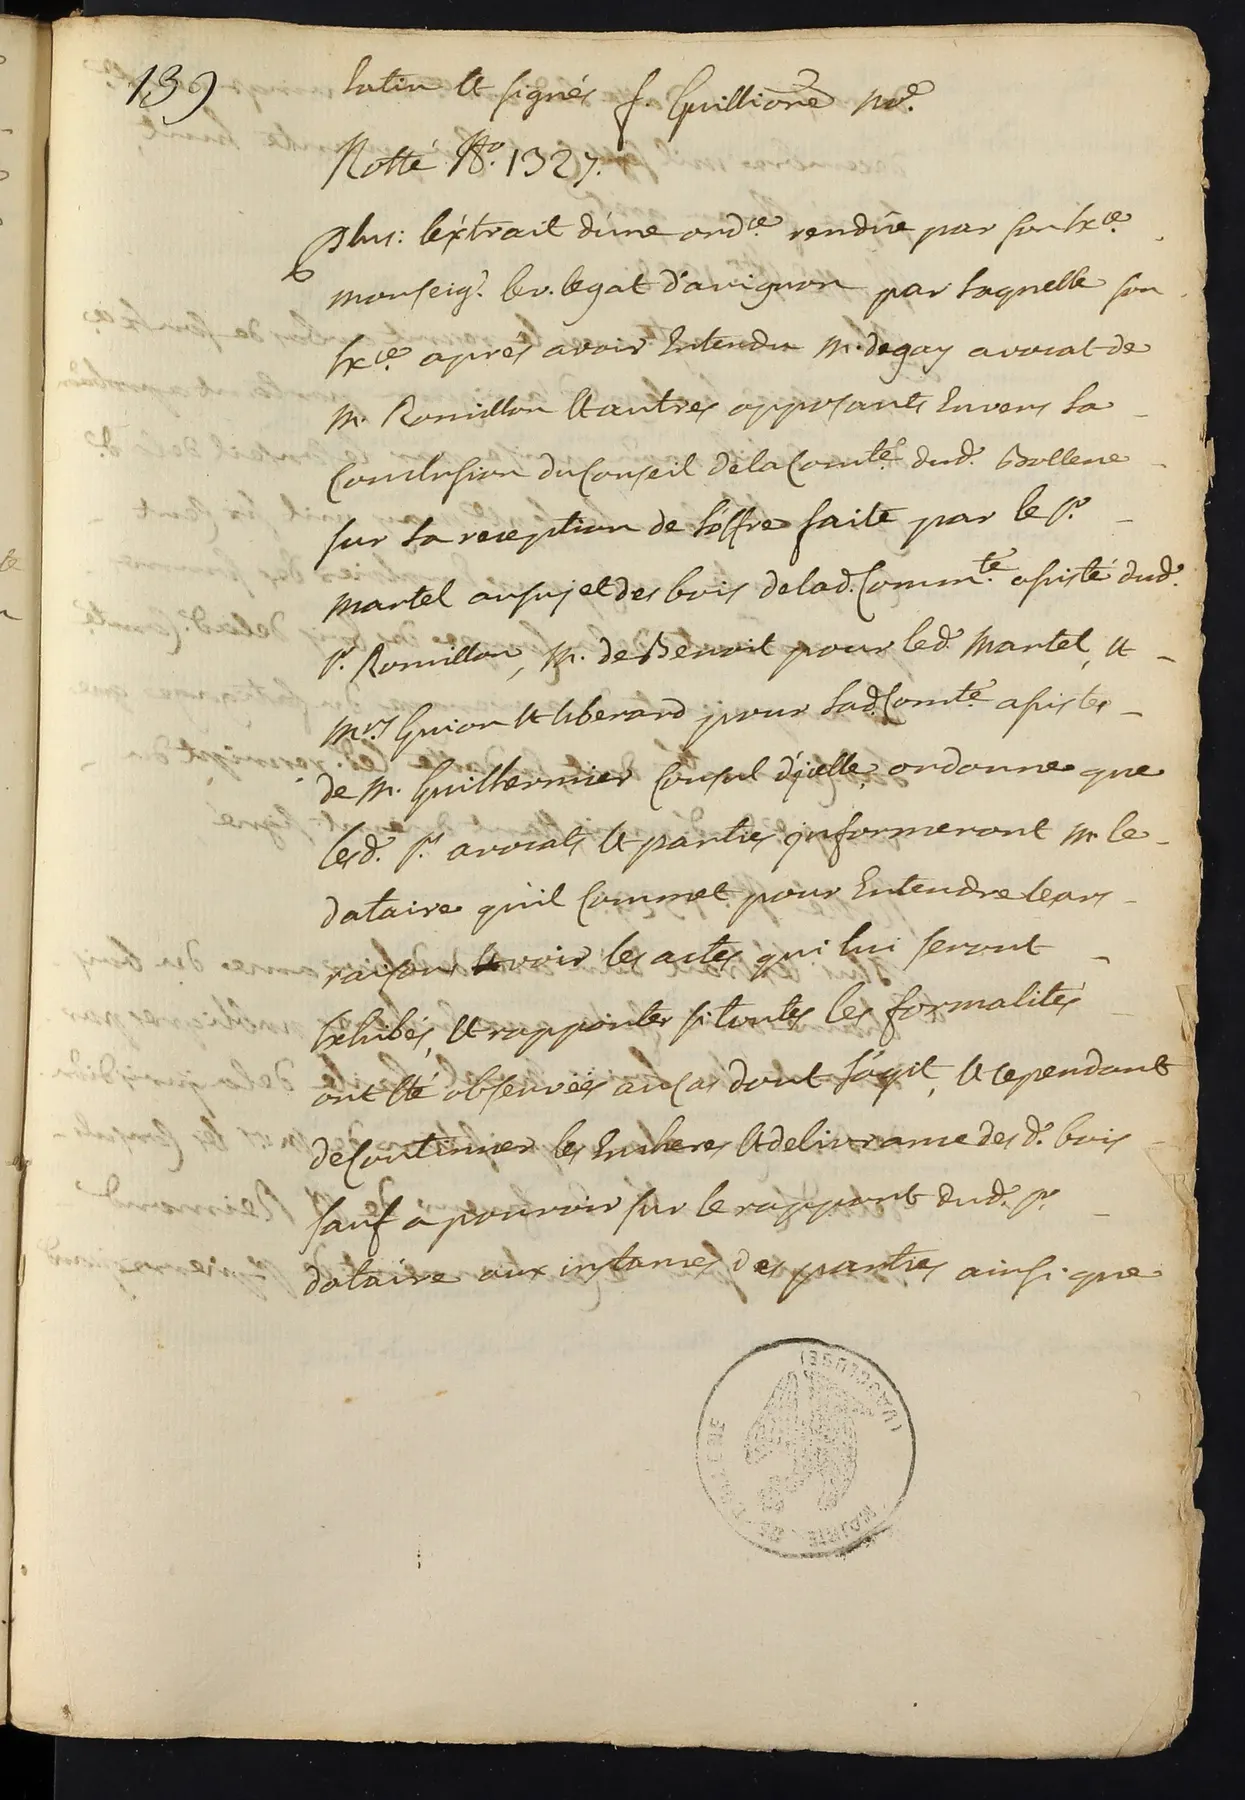 139
latin et signés f. Guillione no.re
Notté N.º 1327.
Plus: l'extrait d'une ord.ce rendüe par son Ex.ce
monseig.r le v. legat d'avignon par laquelle son
Ex.ce aprés avoir Entendu m. degay avocat de
m. Romillon et autres opposants Envers la
Conclusion du Conseil de la Com.té dud. Bollene
sur la reception de l'offre faite par le s.r
martel au sujet des bois de lad. Comm.té assisté dud.
s.r Romillon, m. de Benoit pour led. martel, et
m.rs Guion et liberard pour lad. Com.té assistes
de m. Guilhermier Consul d'jcelle, ordonne que
lesd. s.rs avocats et parties jnformeront m. le
dataire qu'il Commet pour Entendre leurs
raisons et voir les actes qui lui seront
Exhibés, et rapporter si toutes les formalités
ont été observées au cas dont s'agit, et cependant
de Continuer les Encheres et delivrance des d. bois
sauf a pourvoir sur le rapport dud. s.r
dataire aux instances des parties ainsi que
MAIRIE DE BOLLENE (VAUCLUSE)